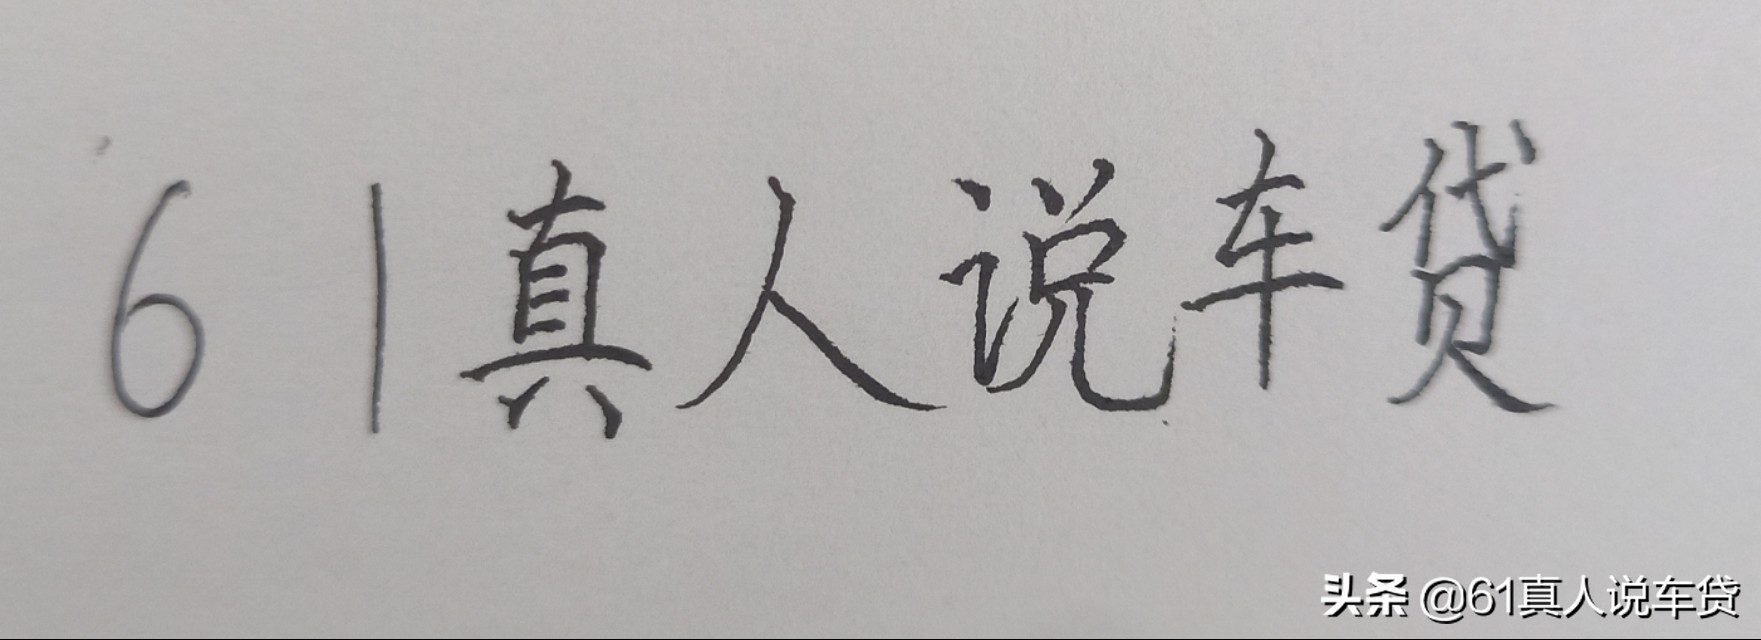 61真人说车贷
头条 @61真人说车贷